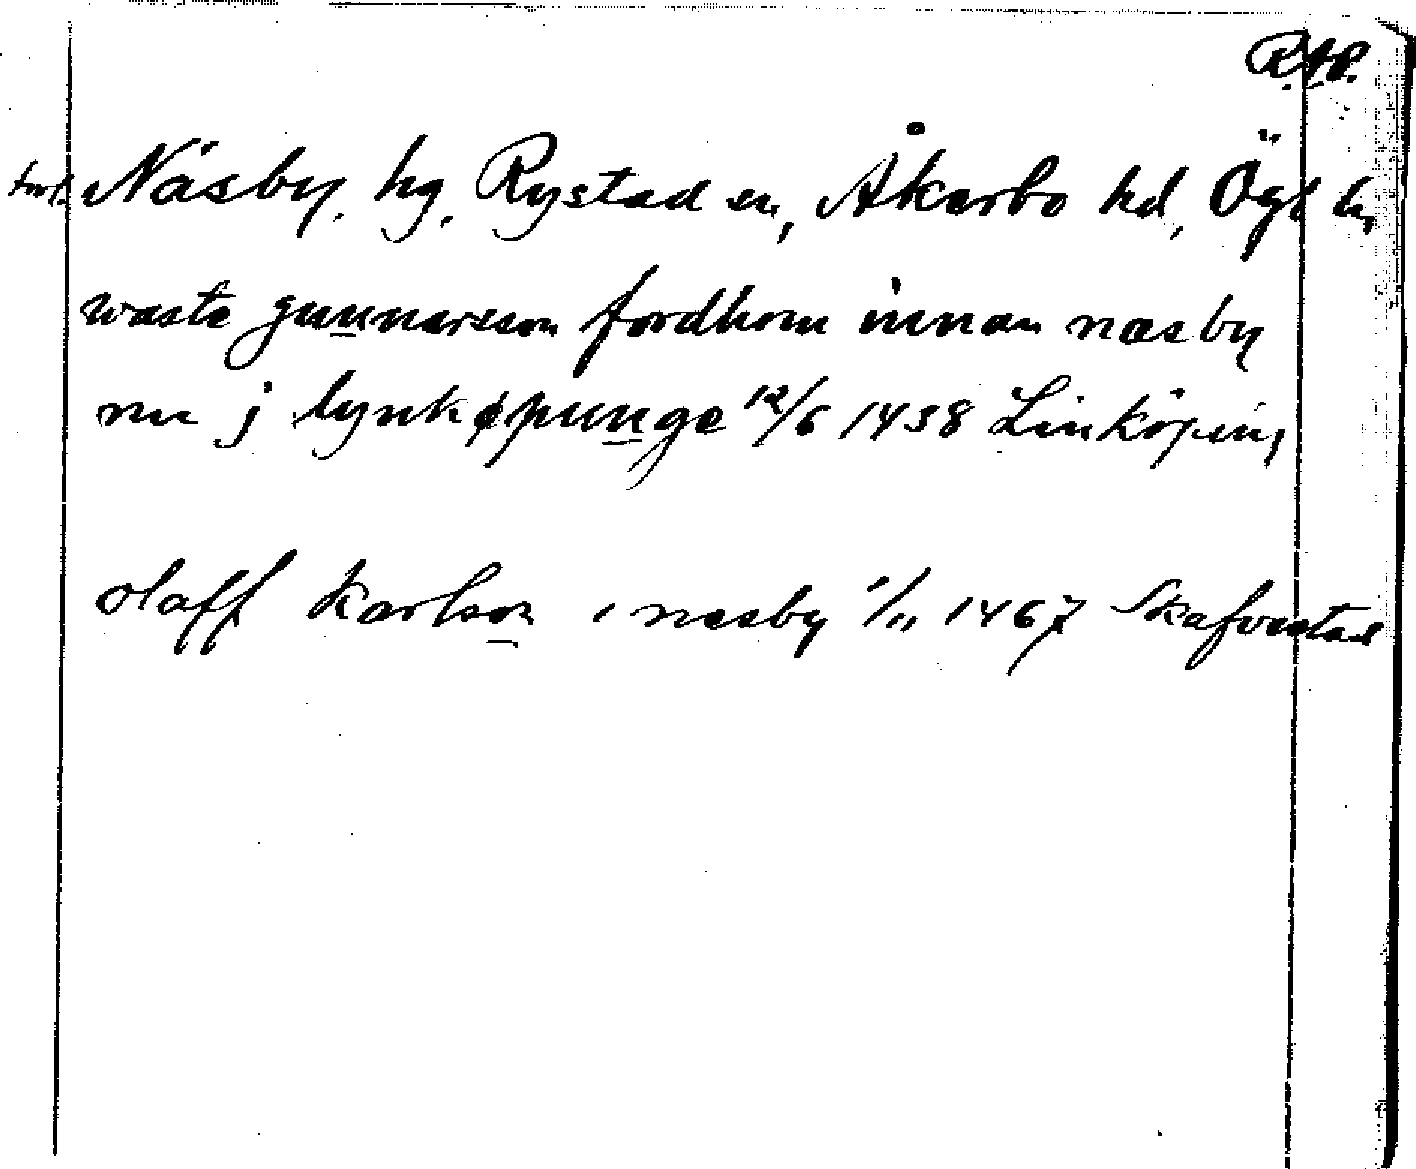 R.A.P.
trol. Näsby, hg, Rystad sn, Åkerbo hd, Ögl ln,
waste gunnarsson fordhom innan næsby
nu j lynkøpunge 12/6 1458 Linköping
olaff karlson i nesby 1/11 1467 Skafvestad